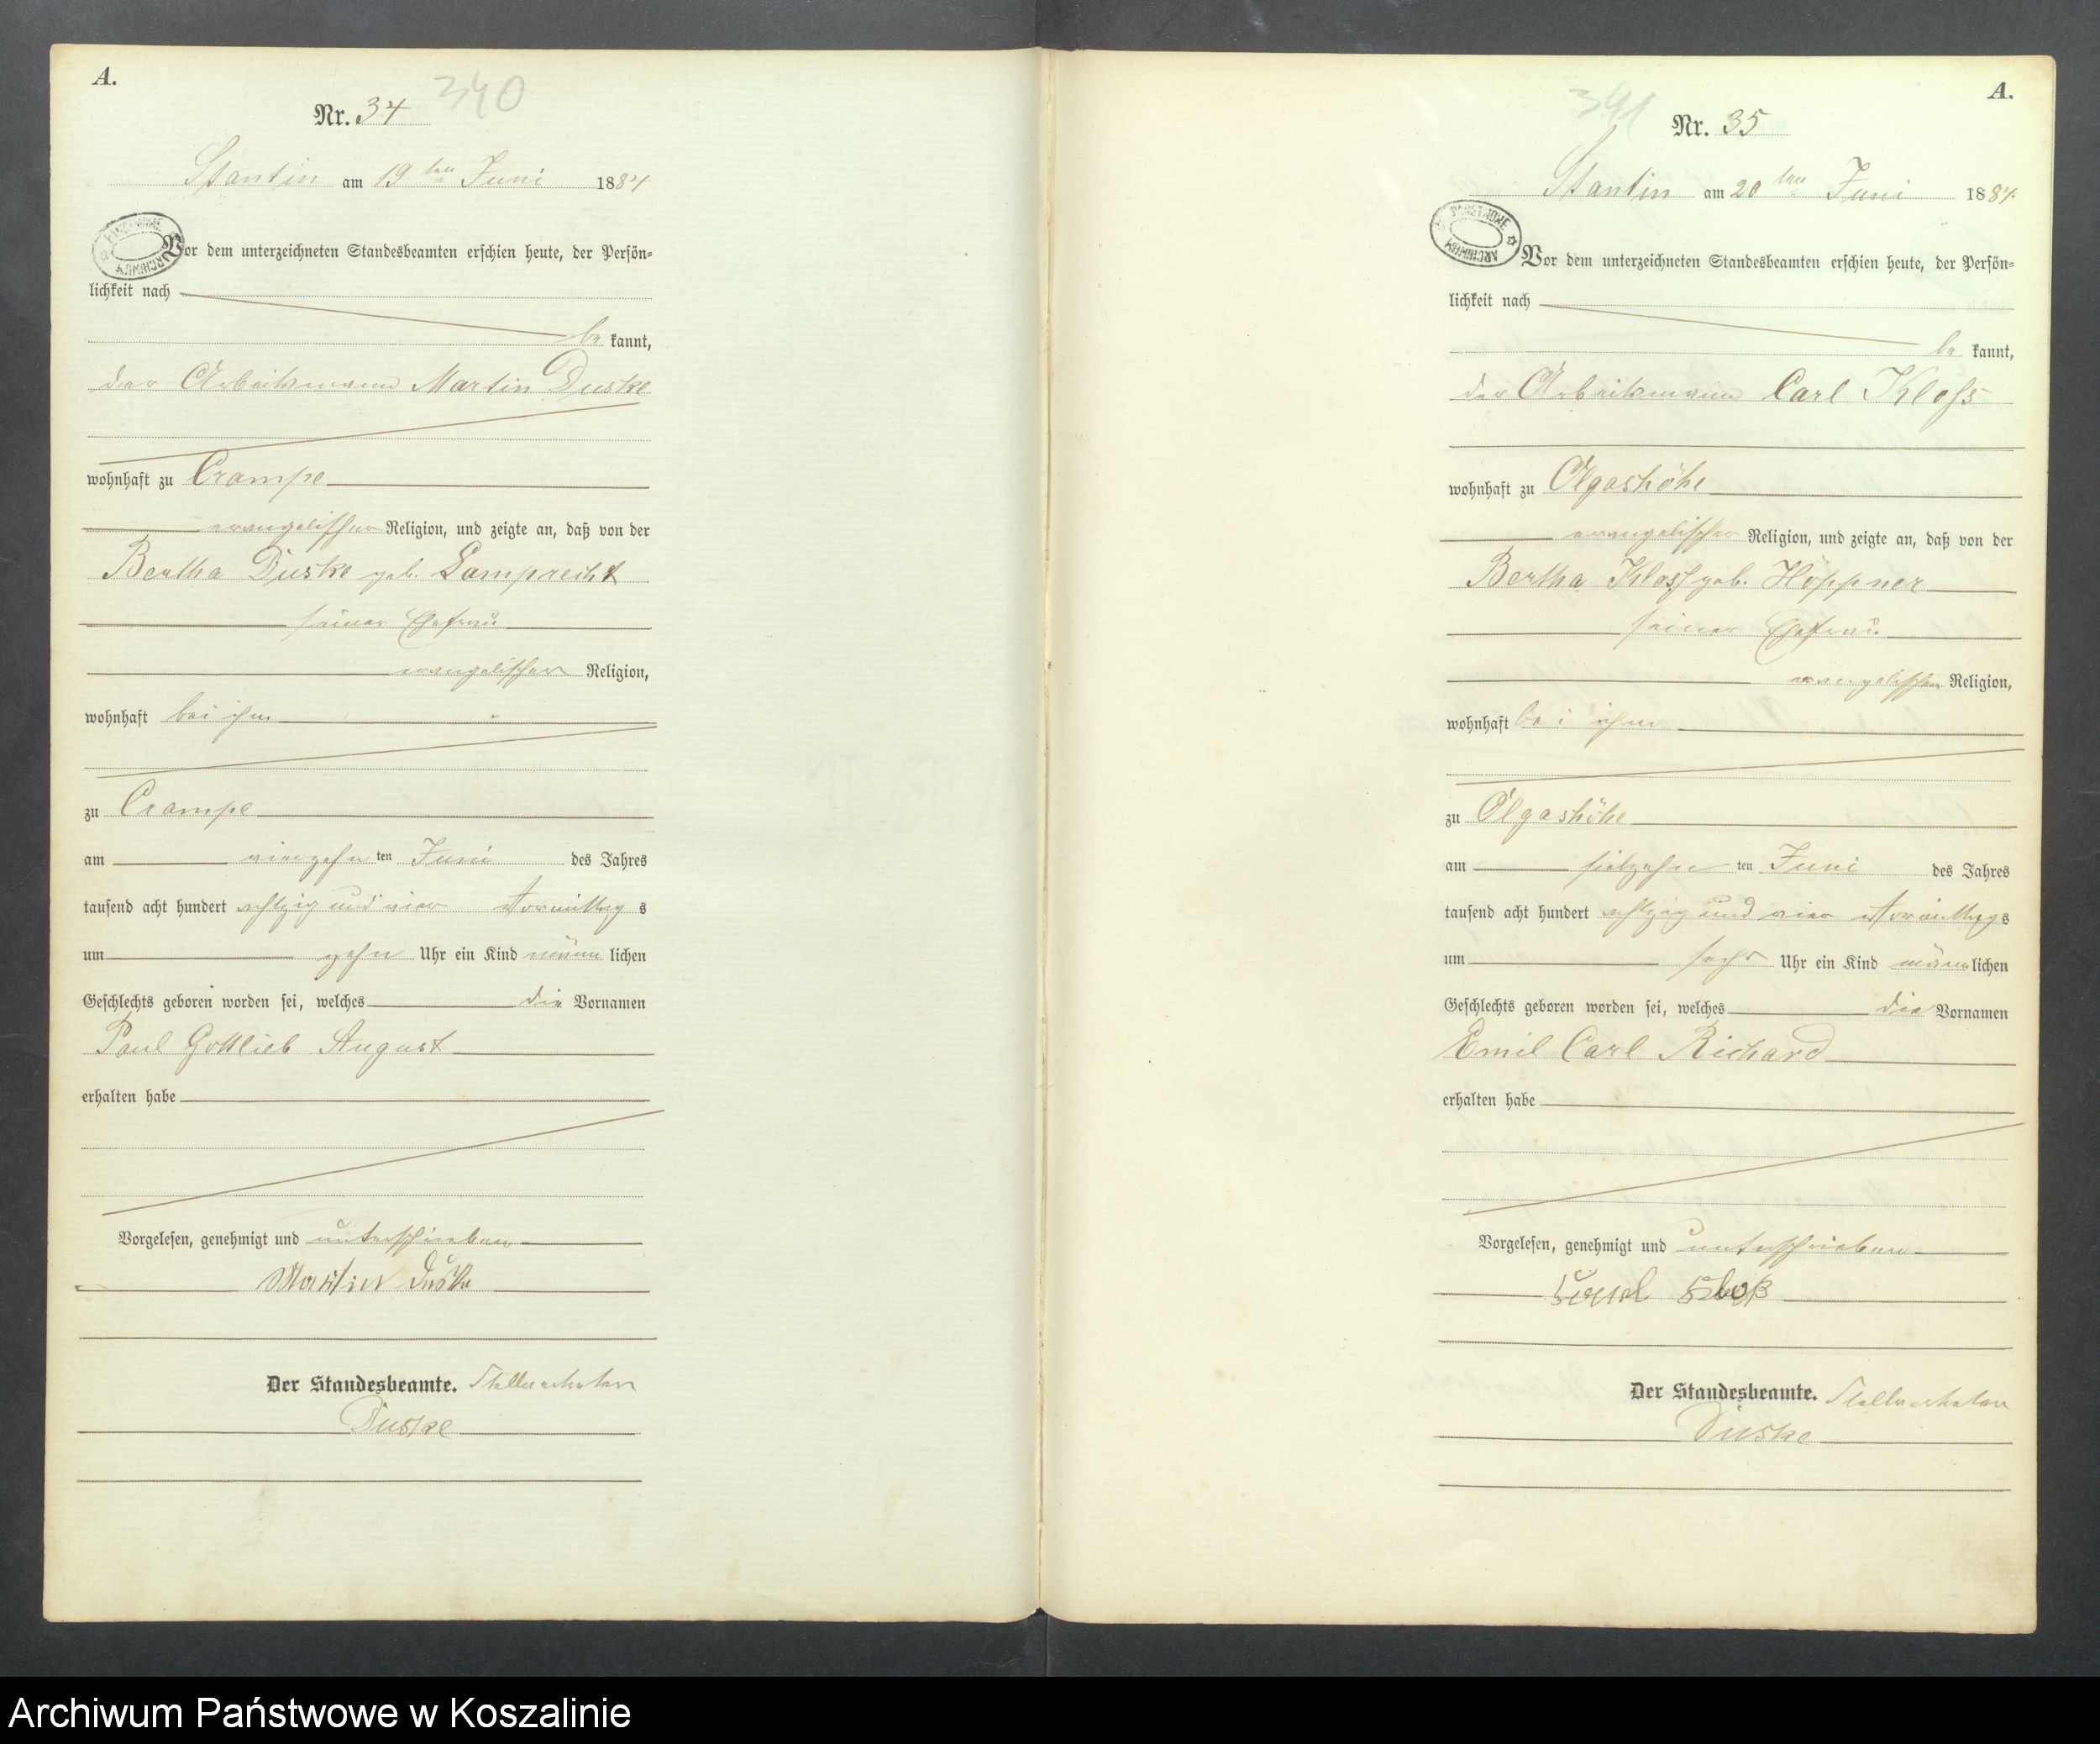 A.
Nr. 34 340
Stantin am 19ten Juni 1884
Vor dem unterzeichneten Standesbeamten erschien heute, der Persön-
lichkeit nach
be kannt,
der Arbeitsmann Martin Duske
wohnhaft zu Crampe
evangelischer Religion, und zeigte an, daß von der
Bertha Duske geb. Lamprecht
seiner Ehefrau
evangelischer Religion,
wohnhaft bei ihm
zu Crampe
am vierzehn ten Juni des Jahres
tausend acht hundert achtzig und vier Vormittag s
um zehn Uhr ein Kind männ lichen
Geschlechts geboren worden sei, welches die Vornamen
Paul Gottlieb August
erhalten habe
Vorgelesen, genehmigt und unterschrieben
Martin Duske
Der Standesbeamte. Stellvertreter
Duske
A.
341 Nr. 35
Stantin am 20ten Juni 1884
PAŃSTWOWE ARCHIWUM
Vor dem unterzeichneten Standesbeamten erschien heute, der Persön-
lichkeit nach
be kannt,
der Arbeitsmann Carl Kloss
wohnhaft zu Olgashöhe
evangelischer Religion, und zeigte an, daß von der
Bertha Kloss geb. Höppner
seiner Ehefrau
evangelischer Religion,
wohnhaft bei ihm
zu Olgashöhe
am siebzehn ten Juni des Jahres
tausend acht hundert achtzig und vier Vormittags
um sechs Uhr ein Kind männlichen
Geschlechts geboren worden sei, welches die Vornamen
Emil Carl Richard
erhalten habe
Vorgelesen, genehmigt und unterschrieben
Kloß
Der Standesbeamte. Stellvertreter
Duske
Archiwum Państwowe w Koszalinie